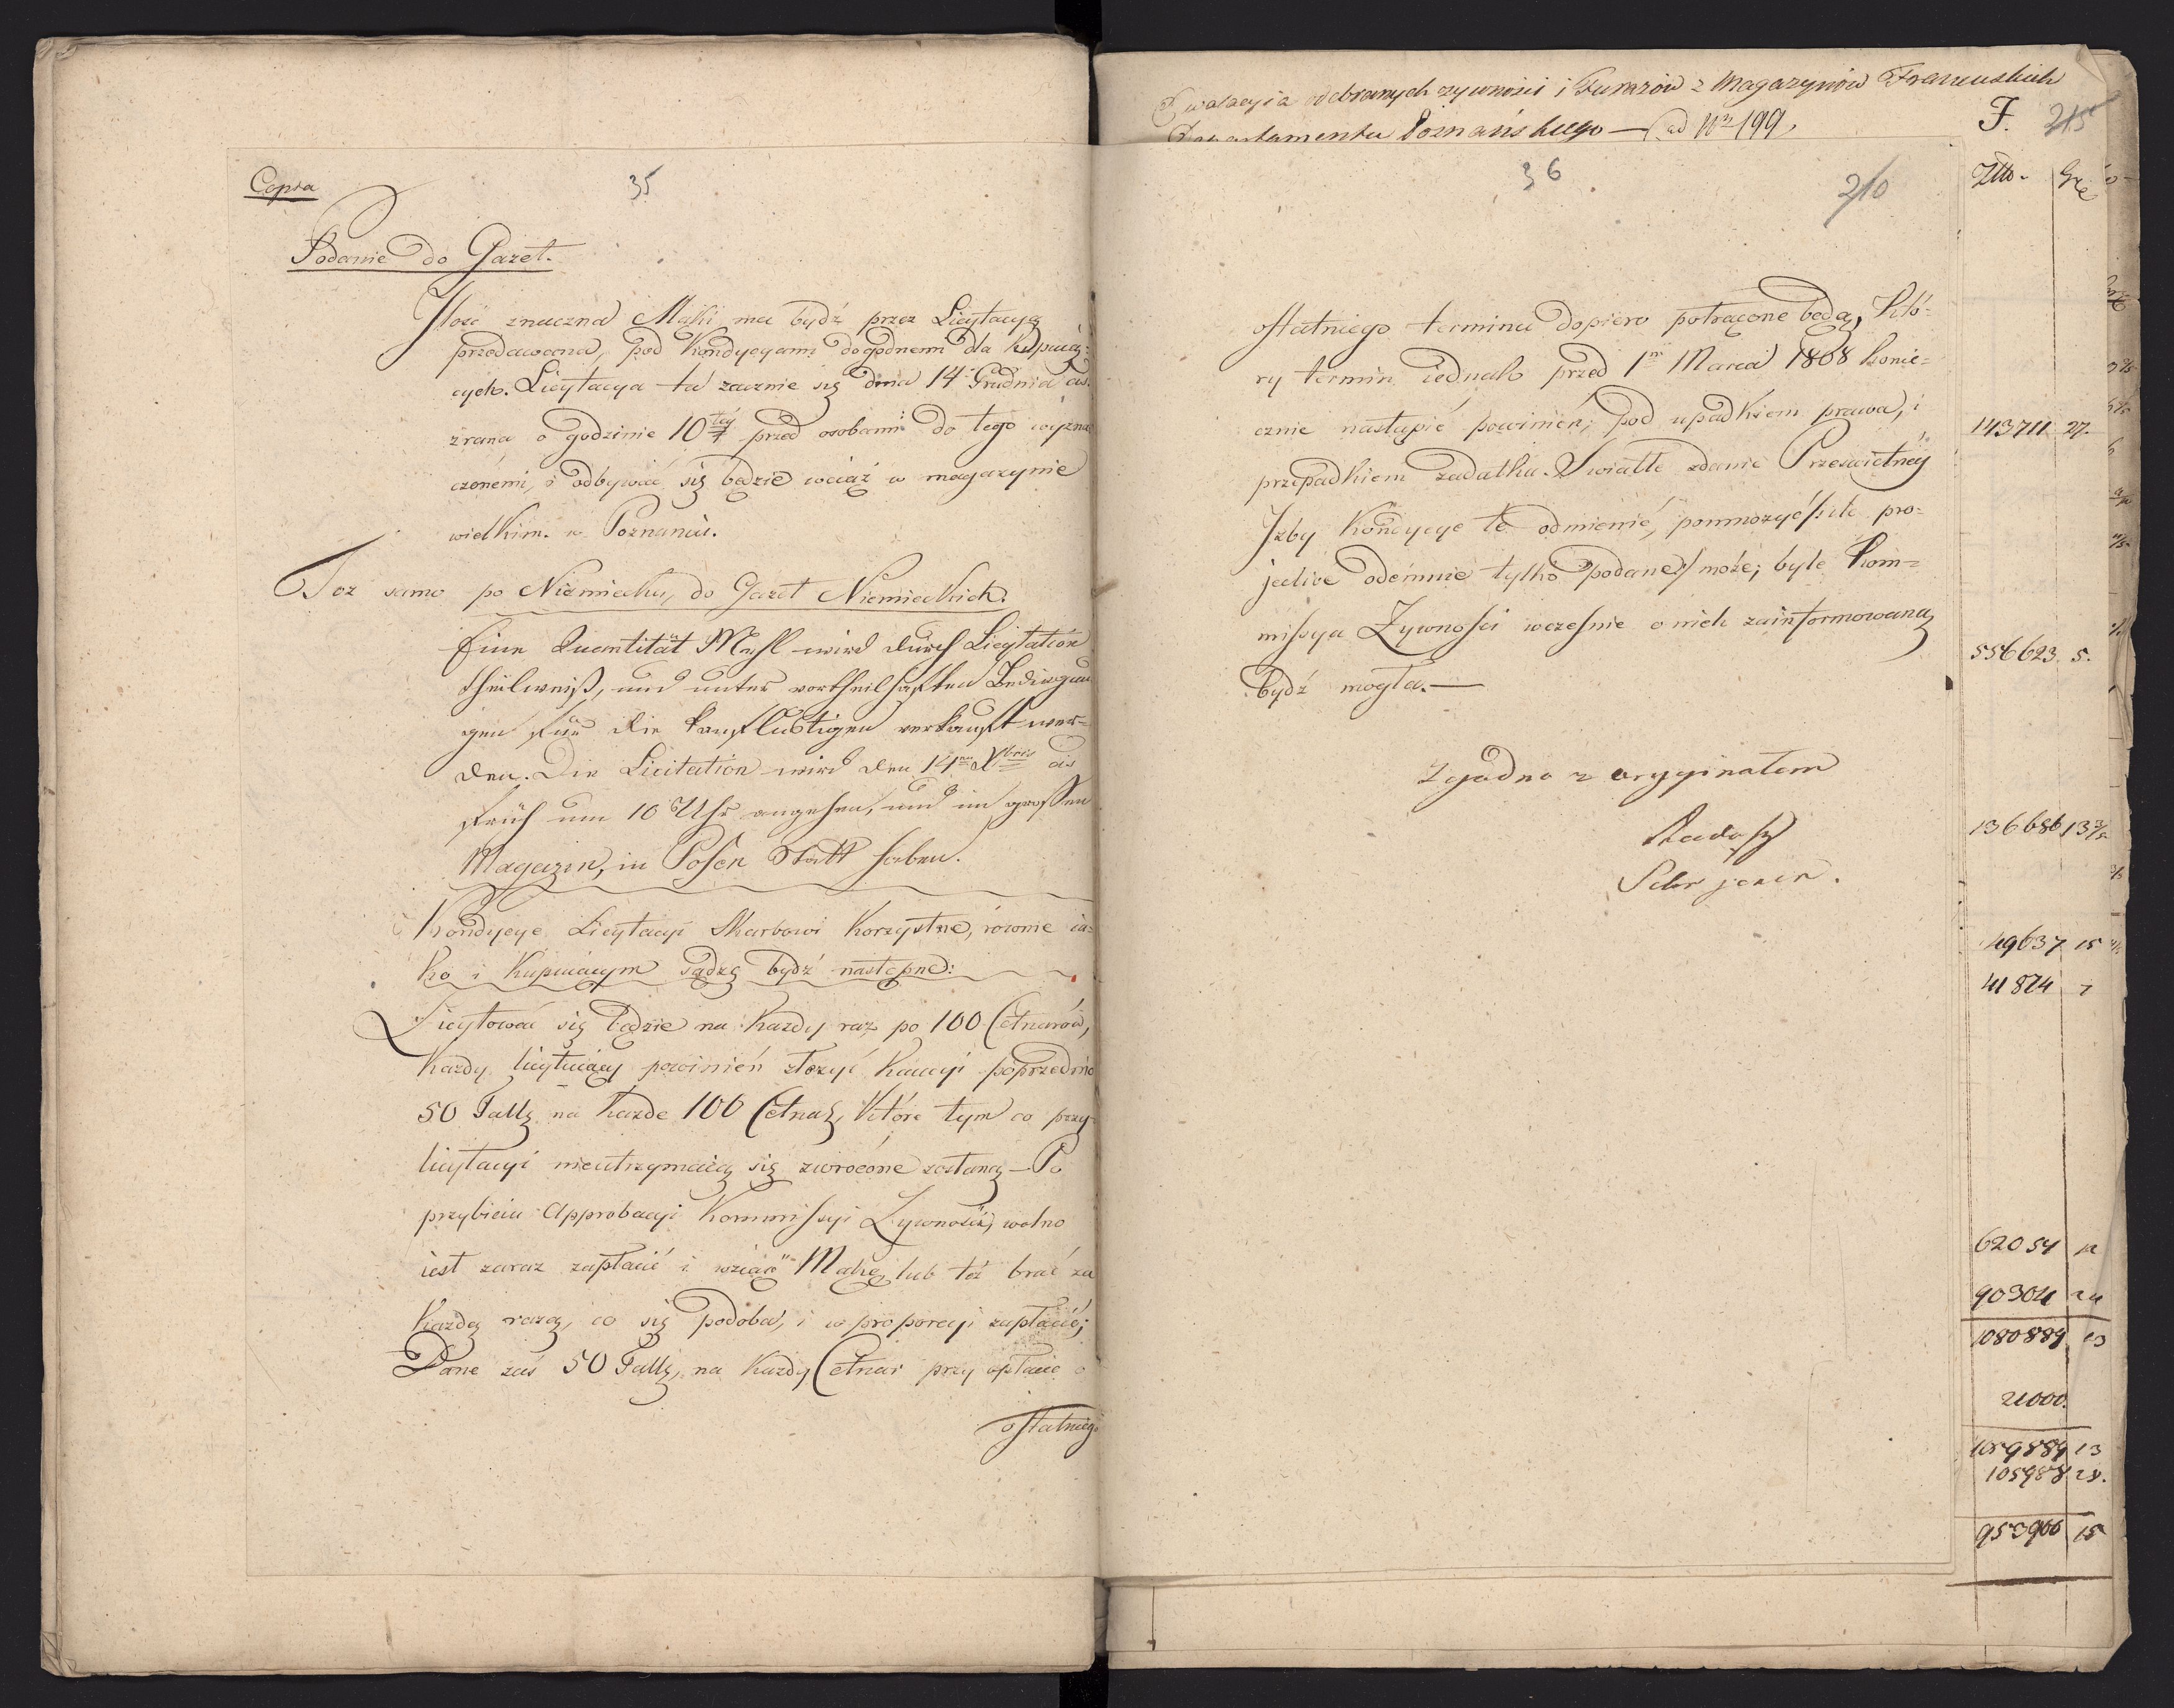 Copia
35
Podanie do Gazet.
Ilość znaczna Mąki ma bydź przez Licytacyą
przedawana, pod kondycyami dogodnemi dla kupuią=
cych. Licytacya ta zacznie się dnia 14 Grudnia
zrana o godzinie 10tey przed osobami do tego wyzna
czonemi, i odbywać się będzie wciąż w magazynie
wielkim w Poznaniu.
Toż samo po Niemiecku, do Gazet Niemieckich.
Eine Quantität Mehl wird durch Licytation
theilweiß, und unter vortheilhaften Bedingun
gen für die Kauflustigen verkauft wer=
den. Die Licitation wird den 14ten Xbris
früh um 10 Uhr angehen, und im grossen
Magazin, in Posen Statt haben.
Kondycye Licytacyi Skarbowi Korzystne, równie ia=
ko i Kupuiącym sądzę bydź następne:
Licytować się będzie na każdy raz po 100 Cetnarów,
Każdy licytuiący powinień złożyć kaucyi poprzednio
50 Tall. na każde 100 Cetnar, które tym co przy
licytacyi nieutrzymaią się zwrócone zostaną – Po
przybiciu Approbacyi Kommissyi Zywności, wolno
iest zaraz zapłacić i wziąć Mąkę, lub też brać za
każdą razą, co się podoba, i w proporcyi zapłacić;
Dane zaś 50 Tall, na każdy Cetnar przy opłacie
ostatniego
odebranych zywności i Furażów z Magazynów Francuskich
Departamentu Poznańskiego — ad Nr 199
F. 215
36
210
ostatniego terminu dopiero potrącone będą, Któ=
ry termin iednak przed 1m Marca 1808 konie=
cznie nastąpić powinien, pod upadkiem prawa, i
przepadkiem zadatku. Swiatłe zdanie Prześwietney
Izby Kondycye te odmienić, pomnożyć /: ile pro=
jective odemnie tylko podane :/ może; byle Kom=
missya Zywności wcześnie o nich zainformowaną
bydź mogła. —
Zgodno z oryginałem
Złto. Gr
143711 27.
556623. 5.
136686 13
49637 15
41874 7
62054 12
90304 24
1080889 13
21000.
1059889 13
105988 28.
953900 15